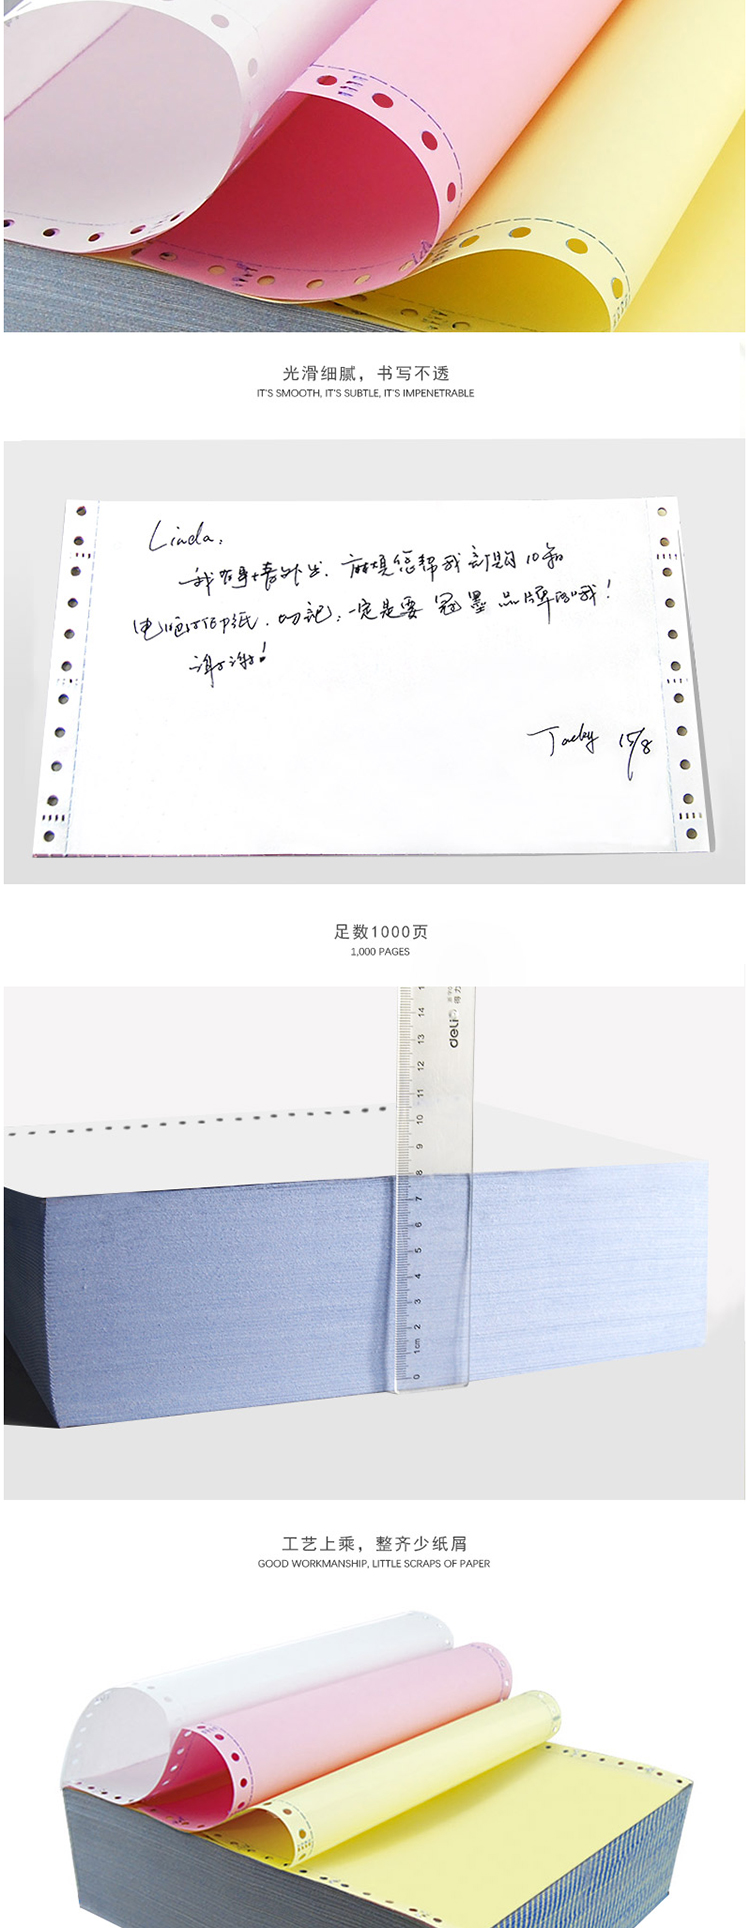 光滑细腻，书写不透
IT'S SMOOTH, IT'S SUBTLE, IT'S IMPENETRABLE
Linda,
我有事情外出,麻烦您帮我订购10箱
电脑打印纸.切记:一定是要冠墨品牌的哦!
谢谢!
Jacky 15/8
足数1000页
1,000 PAGES
14
13
12
11
10
9
8
7
6
5
4
3
2
1cm
0
deli
得力
工艺上乘，整齐少纸屑
GOOD WORKMANSHIP, LITTLE SCRAPS OF PAPER